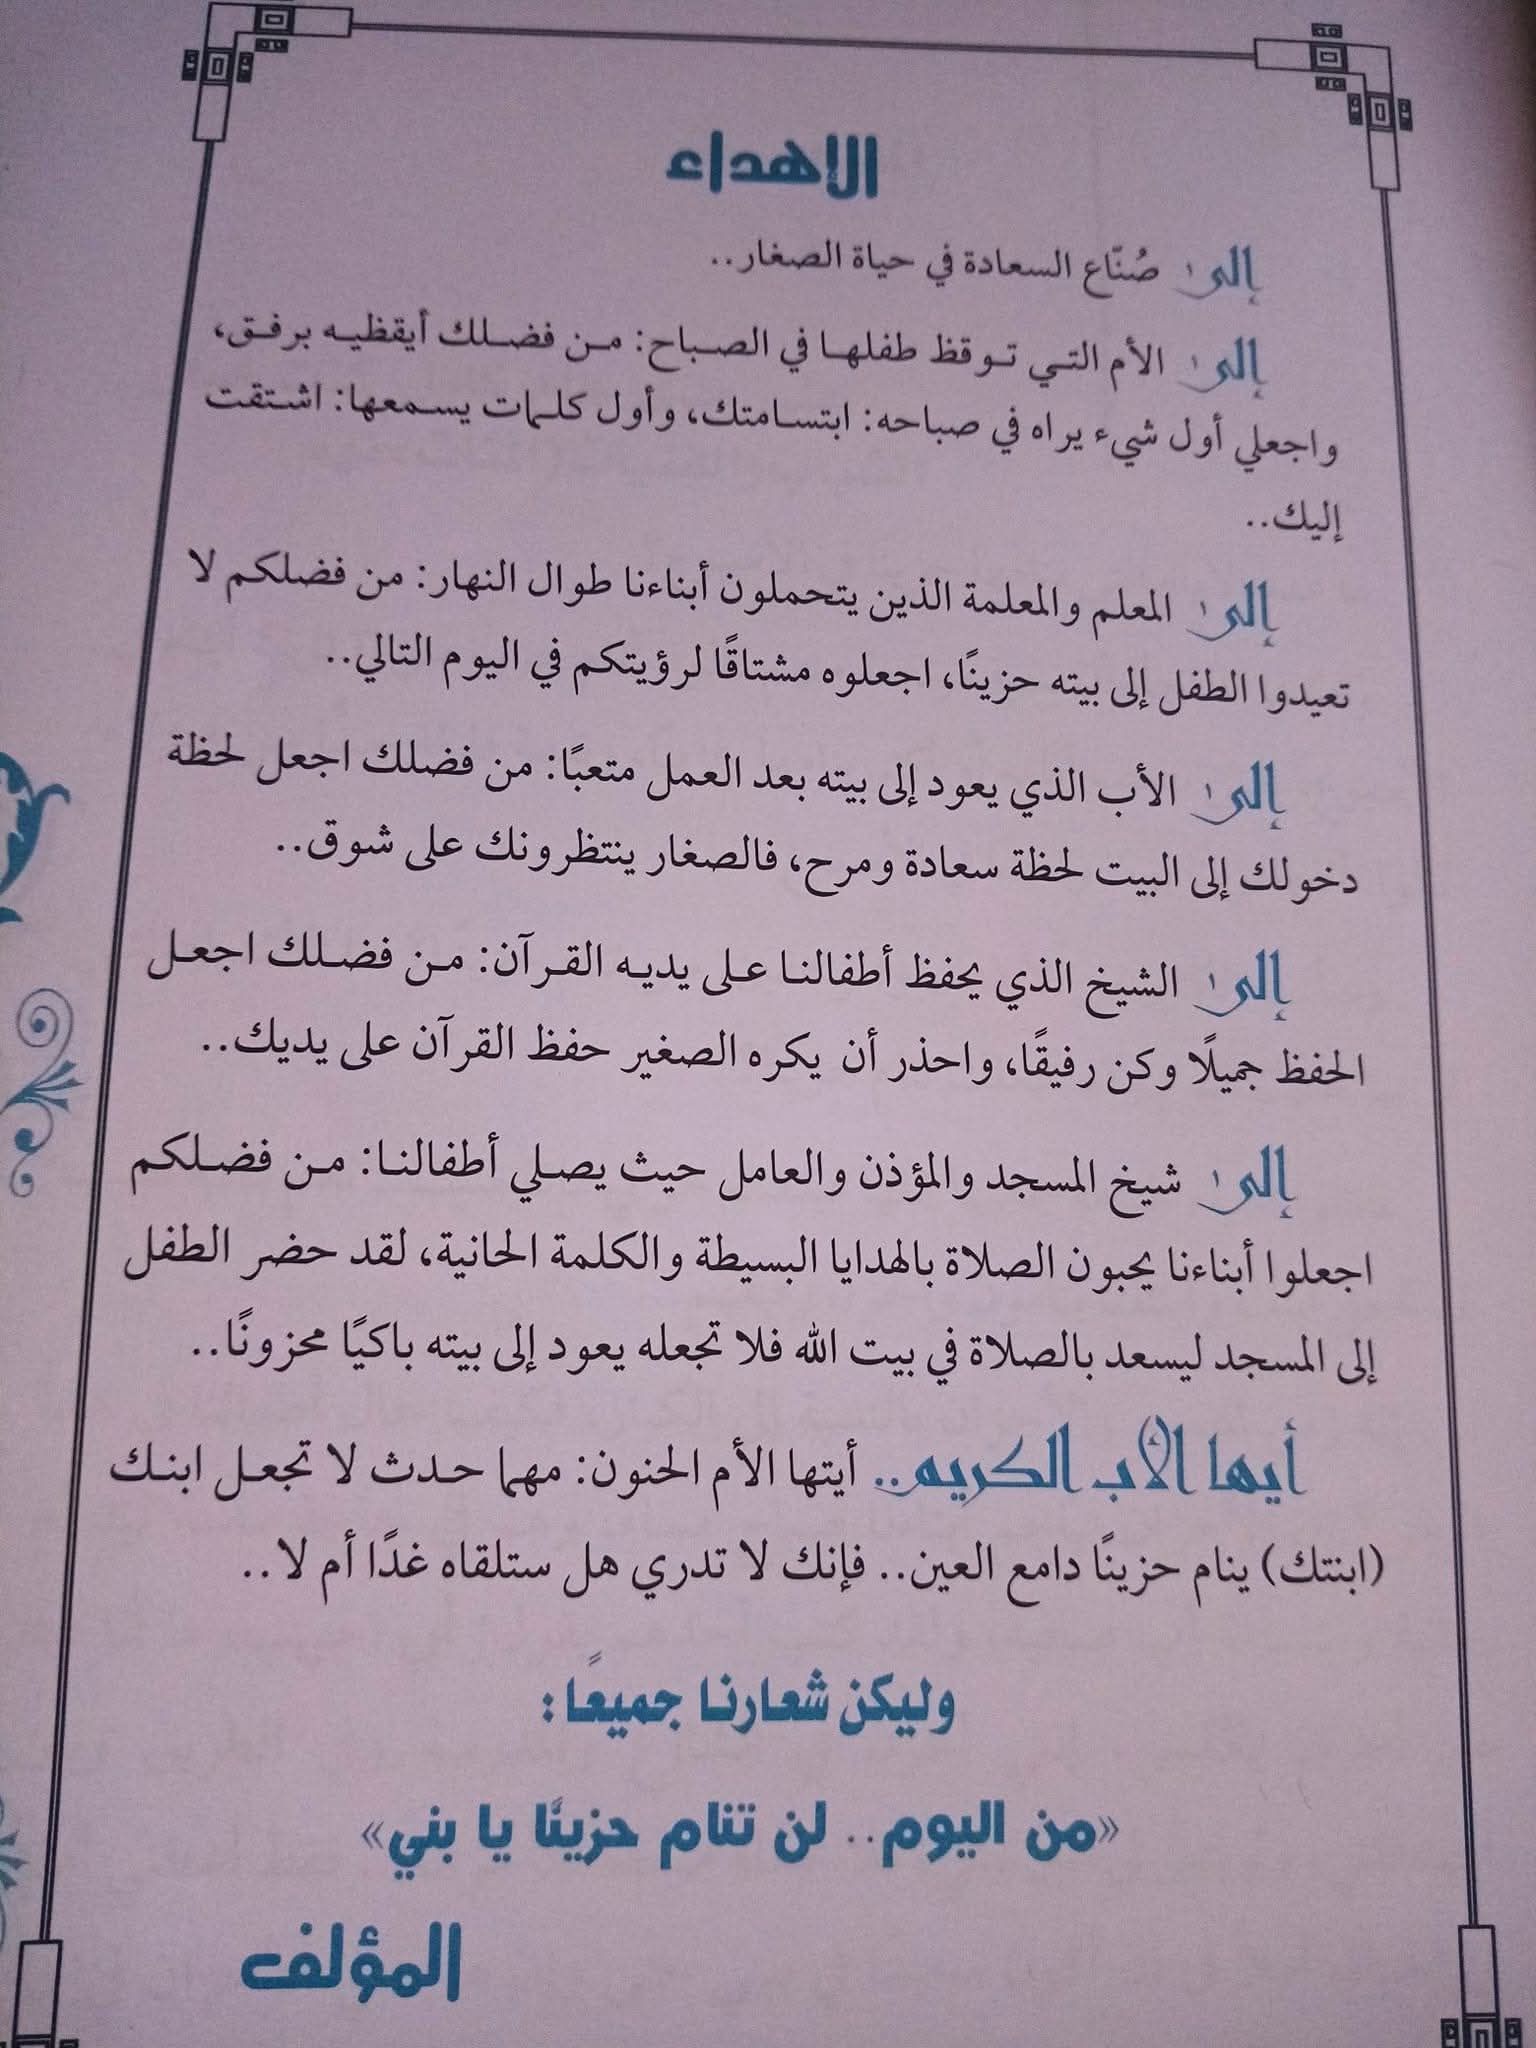 الإهداء
إلى صُنّاع السعادة في حياة الصغار..
إلى الأم التي توقظ طفلها في الصباح: من فضلك أيقظيه برفق،
واجعلي أول شيء يراه في صباحه: ابتسامتك، وأول كلمات يسمعها: اشتقت
إليك..
إلى المعلم والمعلمة الذين يتحملون أبناءنا طوال النهار: من فضلكم لا
تعيدوا الطفل إلى بيته حزينًا، اجعلوه مشتاقًا لرؤيتكم في اليوم التالي..
إلى الأب الذي يعود إلى بيته بعد العمل متعبًا: من فضلك اجعل لحظة
دخولك إلى البيت لحظة سعادة ومرح، فالصغار ينتظرونك على شوق..
إلى الشيخ الذي يحفظ أطفالنا على يديه القرآن: من فضلك اجعل
الحفظ جميلًا وكن رفيقًا، واحذر أن يكره الصغير حفظ القرآن على يديك..
إلى شيخ المسجد والمؤذن والعامل حيث يصلي أطفالنا: من فضلكم
اجعلوا أبناءنا يحبون الصلاة بالهدايا البسيطة والكلمة الحانية، لقد حضر الطفل
إلى المسجد ليسعد بالصلاة في بيت الله فلا تجعله يعود إلى بيته باكيًا محزونًا..
أيها الأب الكريم.. أيتها الأم الحنون: مهما حدث لا تجعل ابنك
(ابنتك) ينام حزينًا دامع العين.. فإنك لا تدري هل ستلقاه غدًا أم لا..
وليكن شعارنا جميعًا:
«من اليوم.. لن تنام حزينًا يا بني»
المؤلف